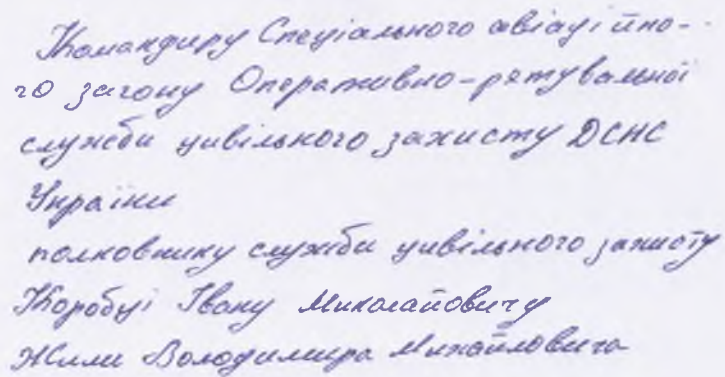 Командиру Спеціального авіаційно-
го загону Оперативно-рятувальної
служби цивільного захисту ДСНС
України
полковнику служби цивільного захисту
Коробці Івану Миколайовичу
Жили Володимира Михайловича